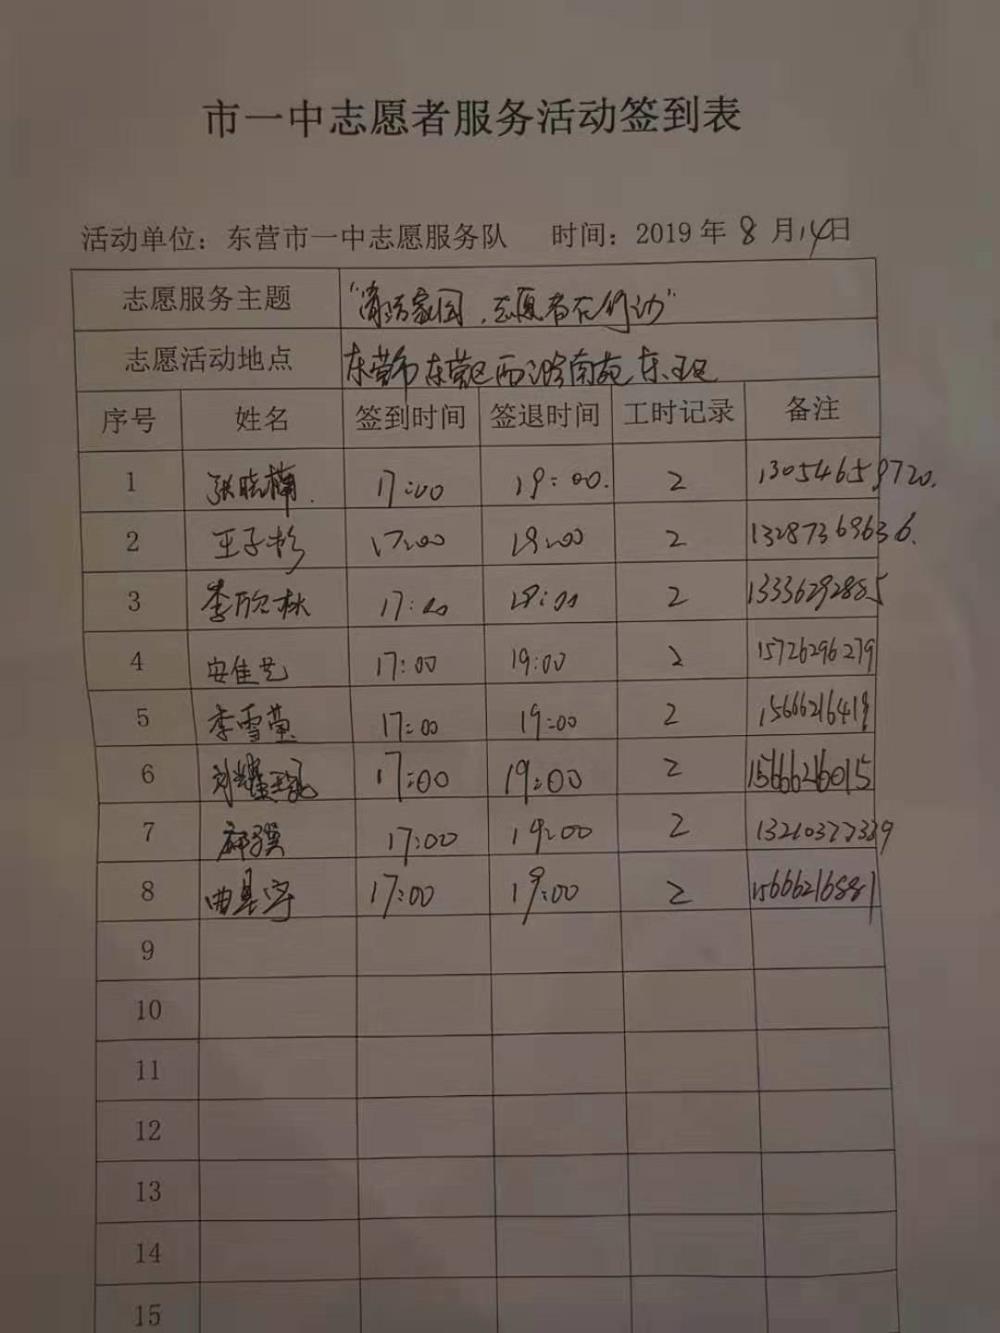 市一中志愿者服务活动签到表
活动单位：东营市一中志愿服务队 时间：2019 年 8 月 14日
志愿服务主题 “清洁家园，志愿者在行动”
志愿活动地点 东营市东营区西湖南苑东王区
序号 姓名 签到时间 签退时间 工时记录 备注
1 张晓楠. 17:00 19:00. 2 13054659720.
2 王子杉 17:00 19:00 2 13287369636.
3 李欣秋 17:00 19:00 2 13336292885
4 安佳艺 17:00 19:00 2 15726296279
5 李雪莹 17:00 19:00 2 15666216419
6 刘耀 17:00 19:00 2 15666216015
7 17:00 19:00 2 13210377339
8 曲 17:00 19:00 2 15666216881
9
10
11
12
13
14
15